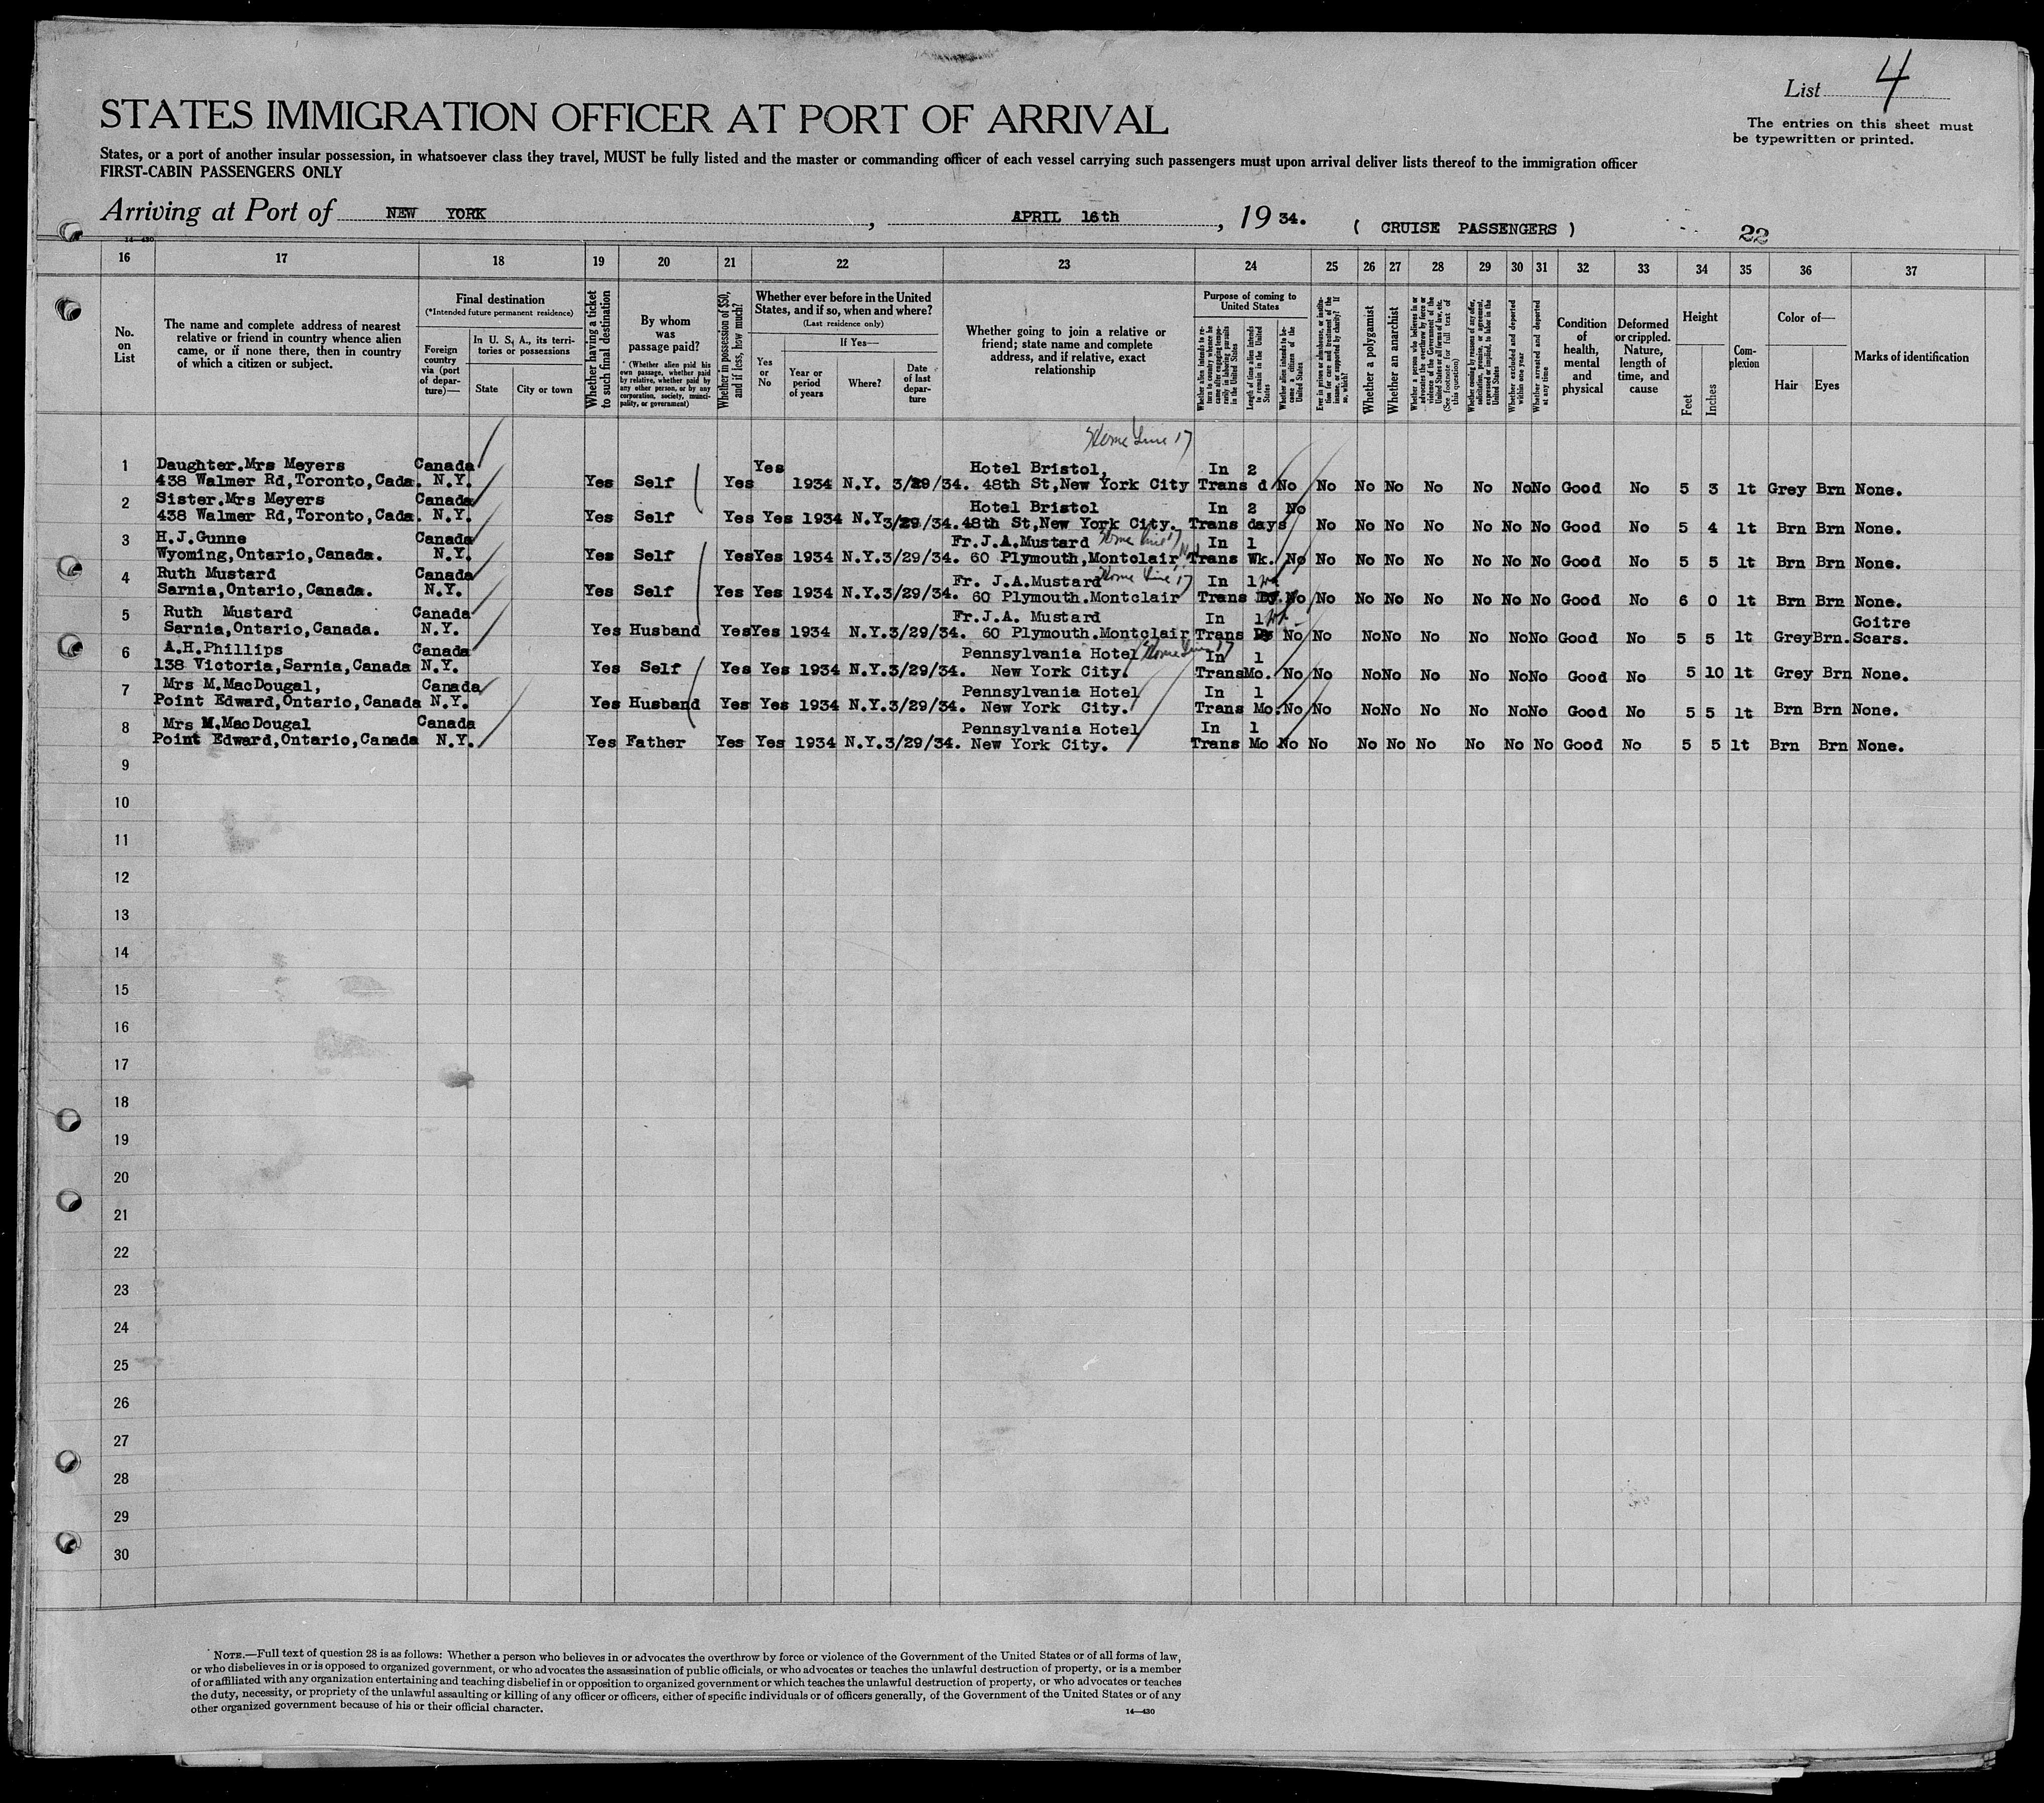 List 4
STATES IMMIGRATION OFFICER AT PORT OF ARRIVAL
The entries on this sheet must
be typewritten or printed.
States, or a port of another insular possession, in whatsoever class they travel, MUST be fully listed and the master or commanding officer of each vessel carrying such passengers must upon arrival deliver lists thereof to the immigration officer
FIRST-CABIN PASSENGERS ONLY
Arriving at Port of NEW YORK, APRIL 16th, 1934. ( CRUISE PASSENGERS ) 22
14—430
16 17 18 19 20 21 22 23 24 25 26 27 28 29 30 31 32 33 34 35 36 37
No.
on
List
The name and complete address of nearest
relative or friend in country whence alien
came, or if none there, then in country
of which a citizen or subject.
Final destination
(*Intended future permanent residence)
Foreign
country
via (port
of depar-
ture)—
In U. S. A., its terri-
tories or possessions
State
City or town
Whether having a ticket
to such final destination
By whom
was
passage paid?
(Whether alien paid his
own passage, whether paid
by relative, whether paid by
any other person, or by any
corporation, society, munici-
pality, or government)
Whether in possession of $50,
and if less, how much?
Whether ever before in the United
States, and if so, when and where?
(Last residence only)
If Yes—
Yes
or
No
Year or
period
of years
Where?
Date
of last
depar-
ture
Whether going to join a relative or
friend; state name and complete
address, and if relative, exact
relationship
Purpose of coming to
United States
Whether alien intends to re-
turn to country whence he
came after engaging tempo-
rarily in laboring pursuits
in the United States
Length of time alien intends
to remain in the United
States
Whether alien intends to be-
come a citizen of the
United States
Ever in prison or almshouse, or institu-
tion for care and treatment of the
insane, or supported by charity? If
so, which?
Whether a polygamist
Whether an anarchist
Whether a person who believes in or
advocates the overthrow by force or
violence of the Government of the
United States or all forms of law, etc.
(See footnote for full text of
this question)
Whether coming by reasons of any offer,
solicitation, promise, or agreement,
expressed or implied, to labor in the
United States
Whether excluded and deported
within one year
Whether arrested and deported
at any time
Condition
of
health,
mental
and
physical
Deformed
or crippled.
Nature,
length of
time, and
cause
Height
Feet
Inches
Com-
plexion
Color of—
Hair
Eyes
Marks of identification
1 Daughter.Mrs Meyers Canada Yes Hotel Bristol, In 2
438 Walmer Rd,Toronto,Cada. N.Y. Yes Self Yes 1934 N.Y. 3/29/34. 48th St,New York City Trans d No No No No No No No No Good No 5 3 lt Grey Brn None.
2 Sister.Mrs Meyers Canada Hotel Bristol In 2 No
438 Walmer Rd,Toronto,Cada. N.Y. Yes Self Yes Yes 1934 N.Y. 3/29/34. 48th St,New York City. Trans days No No No No No No No Good No 5 4 lt Brn Brn None.
3 H.J.Gunne Canada Fr.J.A.Mustard In 1
Wyoming,Ontario,Canada. N.Y. Yes Self Yes Yes 1934 N.Y. 3/29/34. 60 Plymouth,Montclair Trans Wk. No No No No No No No No Good No 5 5 lt Brn Brn None.
4 Ruth Mustard Canada Fr. J.A.Mustard In 1
Sarnia,Ontario,Canada. N.Y. Yes Self Yes Yes 1934 N.Y. 3/29/34. 60 Plymouth.Montclair Trans No No No No No No No No Good No 6 0 lt Brn Brn None.
5 Ruth Mustard Canada Fr.J.A. Mustard In 1 Goitre
Sarnia,Ontario,Canada. N.Y. Yes Husband Yes Yes 1934 N.Y. 3/29/34. 60 Plymouth.Montclair Trans No No No No No No No No Good No 5 5 lt Grey Brn. Scars.
6 A.H.Phillips Canada Pennsylvania Hotel In 1
138 Victoria,Sarnia,Canada N.Y. Yes Self Yes Yes 1934 N.Y. 3/29/34. New York City. Trans Mo. No No No No No No No No Good No 5 10 lt Grey Brn None.
7 Mrs M.MacDougal, Canada Pennsylvania Hotel In 1
Point Edward,Ontario,Canada N.Y. Yes Husband Yes Yes 1934 N.Y. 3/29/34. New York City. Trans Mo. No No No No No No No No Good No 5 5 lt Brn Brn None.
8 Mrs M.MacDougal Canada Pennsylvania Hotel In 1
Point Edward,Ontario,Canada N.Y. Yes Father Yes Yes 1934 N.Y. 3/29/34. New York City. Trans Mo No No No No No No No No Good No 5 5 lt Brn Brn None.
9
10
11
12
13
14
15
16
17
18
19
20
21
22
23
24
25
26
27
28
29
30
NOTE.—Full text of question 28 is as follows: Whether a person who believes in or advocates the overthrow by force or violence of the Government of the United States or of all forms of law,
or who disbelieves in or is opposed to organized government, or who advocates the assassination of public officials, or who advocates or teaches the unlawful destruction of property, or is a member
of or affiliated with any organization entertaining and teaching disbelief in or opposition to organized government or which teaches the unlawful destruction of property, or who advocates or teaches
the duty, necessity, or propriety of the unlawful assaulting or killing of any officer or officers, either of specific individuals or of officers generally, of the Government of the United States or of any
other organized government because of his or their official character.
14—430